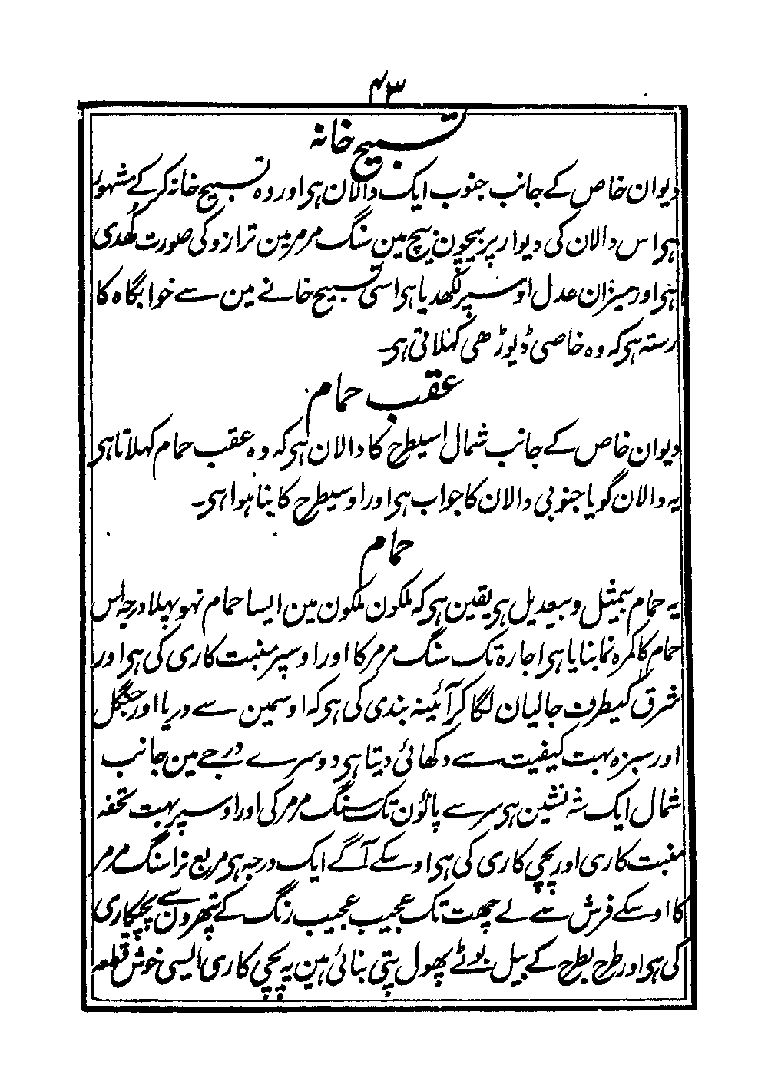 ۴۳
تسبیح خانہ
دیوان خاص کے جانب جنوب ایک دالان ہی اور وہ تسبیح خانہ کر کے مشہور
ہی اس دالان کی دیوار پر بیچون بیچ مین سنگ مرمر مین ترازو کی صورت کھدی
ہی اور میزان عدل اوسپر لکھدیا ہی اسی تسبیح خانے مین سے خوابگاہ کا
رستہ ہی کہ وہ خاصی ڈیوڑھی کہلاتی ہی۔
عقب حمام
دیوان خاص کے جانب شمال اسیطرح کا دالان ہی کہ وہ عقب حمام کہلاتا ہی
یہ دالان گویا جنوبی دالان کا جواب ہی اور اوسیطرح کا بنا ہوا ہی۔
حمام
یہ حمام بیمثل و بیعدیل ہی یقین ہی کہ ملکون ملکون مین ایسا حمام نہو پہلا درجہ اس
حمام کا کمرہ نما بنایا ہی اجارہ تک سنگ مرمر کا اور اوسپر منبت کاری کی ہی اور
شرق کیطرف جالیان لگا کر آئینہ بندی کی ہی کہ اوسمین سے دریا اور جنگل
اور سبزہ بہت کیفیت سے دکھائی دیتا ہی دوسرے درجے مین جانب
شمال ایک شہ نشین ہی سر سے پانون تک سنگ مرمر کی اور اوسپر بہت تحفہ
منبت کاری اور پچی کاری کی ہی اوسکے آگے ایک درجہ ہی مربع نرا سنگ مرمر
کا اوسکے فرش سے لے چھت تک عجیب عجیب رنگ کے پتھرون سے پچیکاری
کی ہی اور طرح بطرح کے بیل بوٹے پھول پتی بنائی ہین یہ پچی کاری ایسی خوش قطع